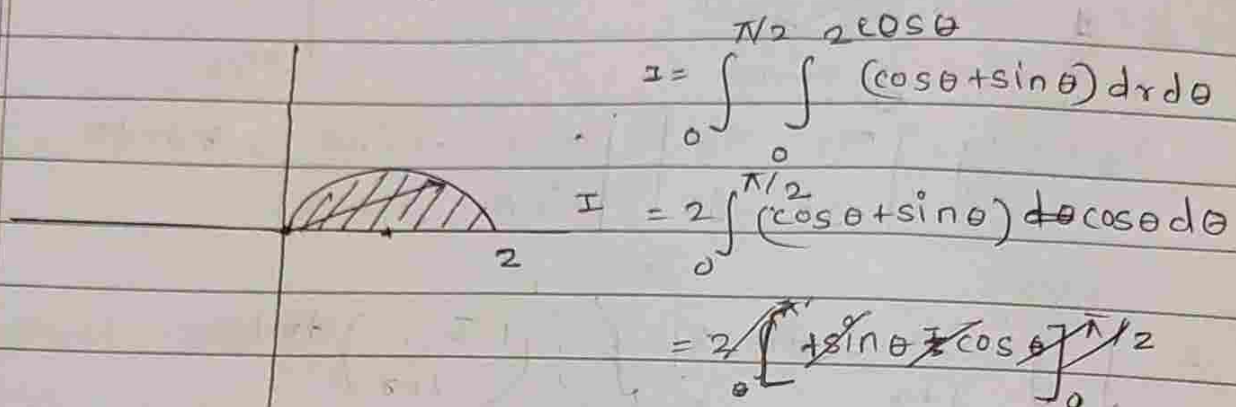 I = ∫₀^{π/2} ∫₀^{2cosθ} (cosθ + sinθ) dr dθ
I = 2 ∫₀^{π/2} (cosθ + sinθ) cosθ dθ
2
= 2 [ + sinθ - cosθ ]₀^{π/2}